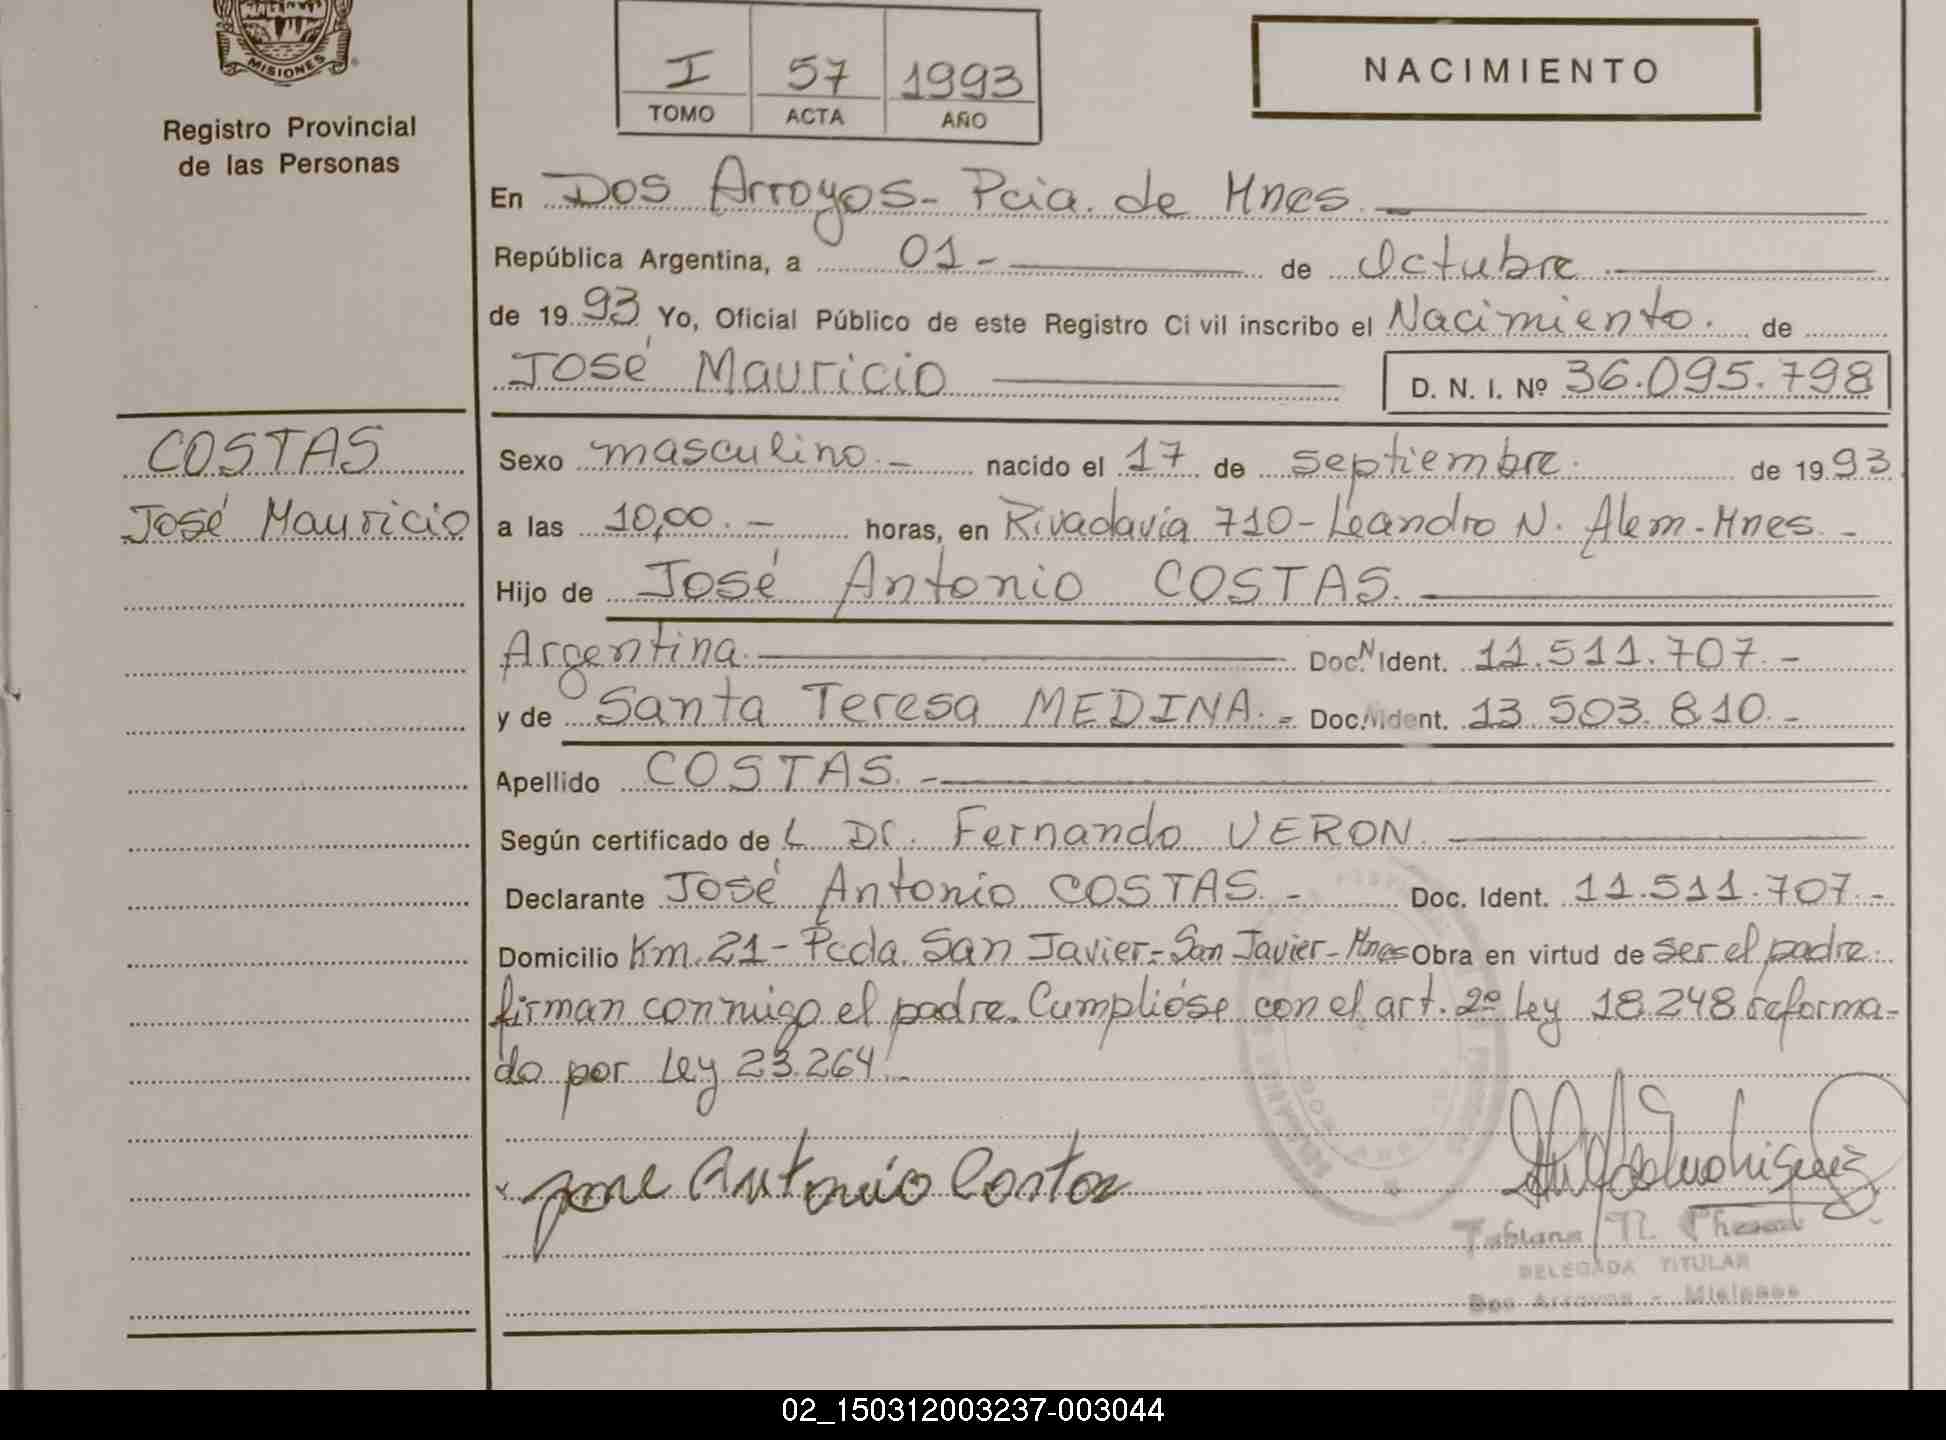 MISIONES
Registro Provincial
de las Personas
I 57 1993
TOMO ACTA AÑO
NACIMIENTO
En Dos Arroyos - Pcia. de Mnes.
República Argentina, a 01 - de Octubre
de 1993 Yo, Oficial Público de este Registro Ci vil inscribo el Nacimiento. de
José Mauricio D. N. I. Nº 36.095.798
COSTAS
José Mauricio
Sexo masculino. - nacido el 17 de septiembre. de 1993
a las 10,00. - horas, en Rivadavia 710 - Leandro N. Alem - Mnes. -
Hijo de José Antonio COSTAS.
Argentina. Doc. N Ident. 11.511.707. -
y de Santa Teresa MEDINA. = Doc. Ident. 13.503.810. -
Apellido COSTAS. -
Según certificado de L Dr. Fernando VERON.
Declarante José Antonio COSTAS. - Doc. Ident. 11.511.707. -
Domicilio Km. 21 - Pcda. San Javier - San Javier - Mnes Obra en virtud de ser el padre.
firman conmigo el padre. Cumplióse con el art. 2º Ley 18.248 reforma-
do por Ley 23.264. -
Jose Antonio Costas
Fabiana N.
DELEGADA TITULAR
Dos Arroyos - Misiones
02_150312003237-003044